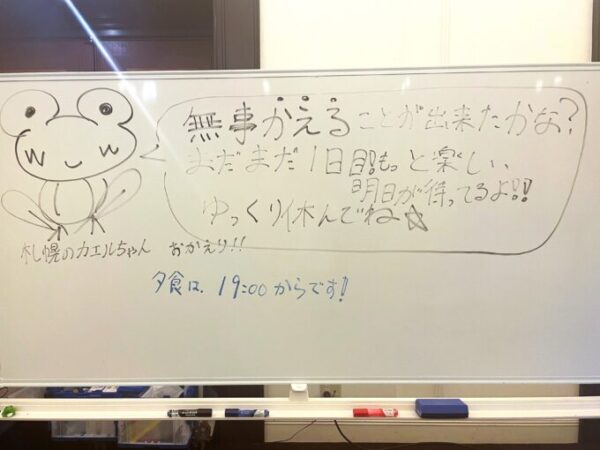 無事かえることが出来たかな?
まだまだ1日目!もっと楽しい、
明日が待ってるよ!!
ゆっくり休んでね☆
札幌のカエルちゃん おかえり!!
夕食は、19:00からです!